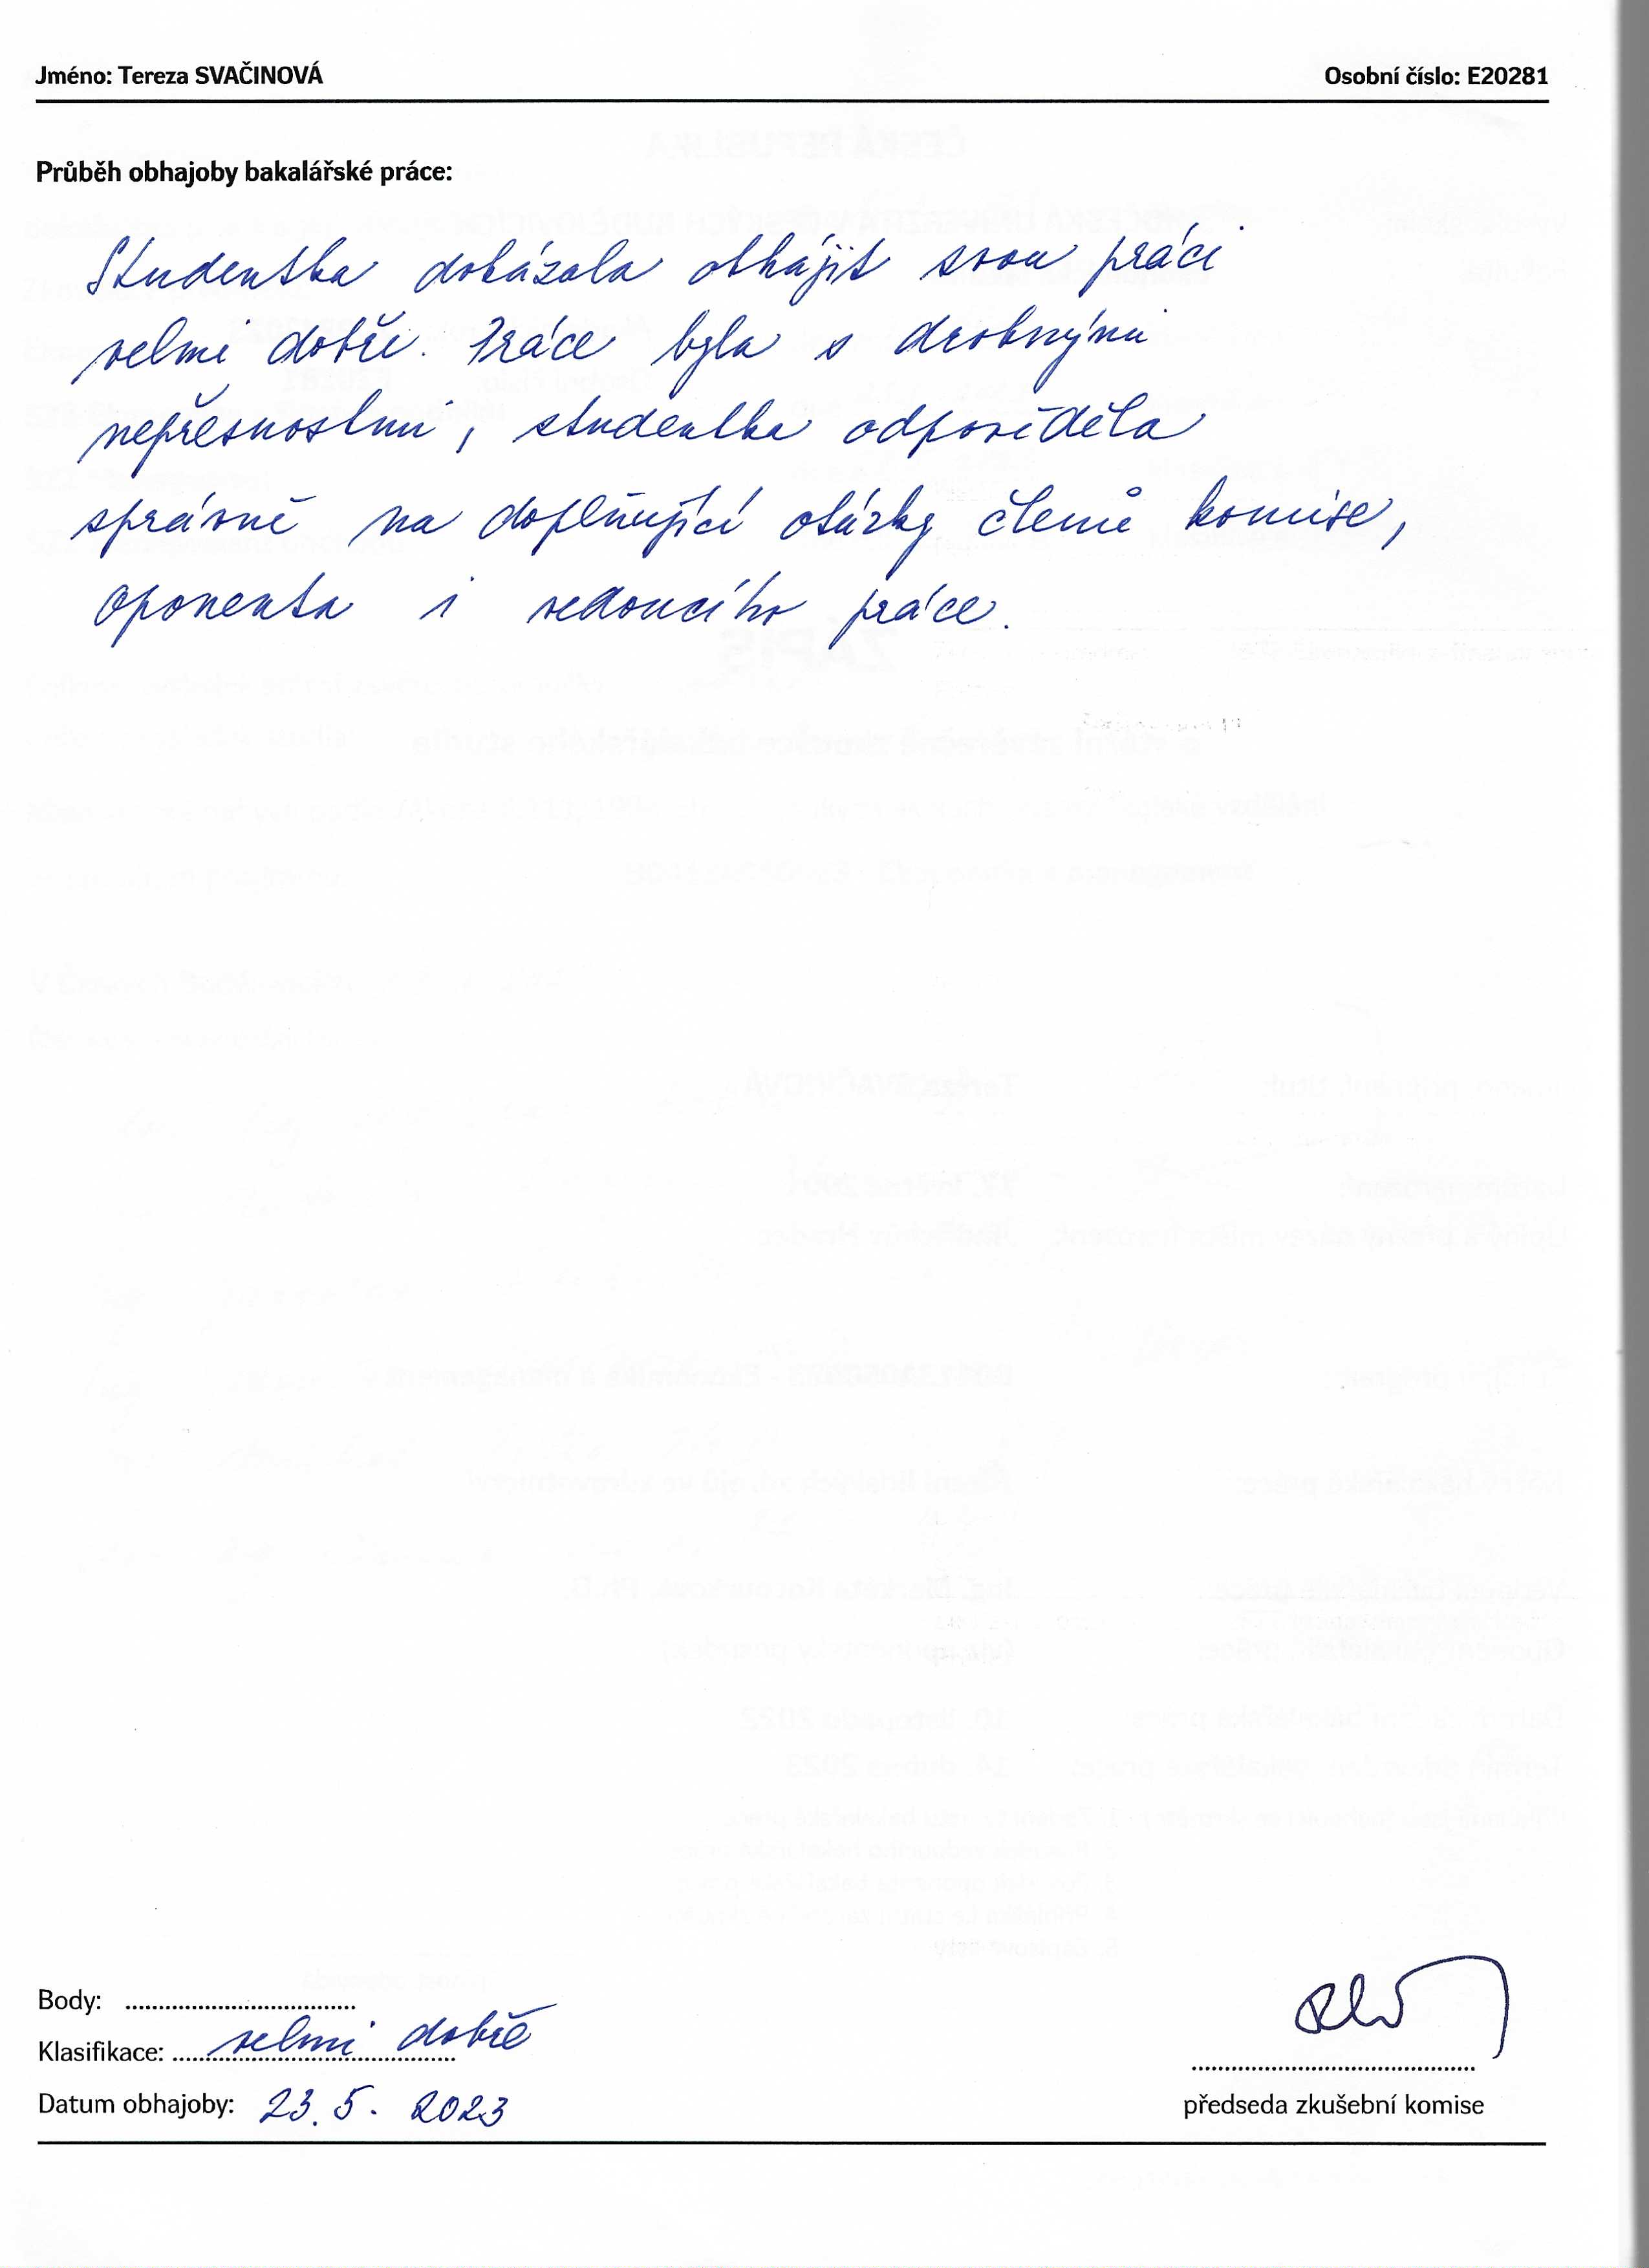 Jméno: Tereza SVAČINOVÁ Osobní číslo: E20281
Průběh obhajoby bakalářské práce:
Studentka dokázala obhájit svou práci
velmi dobře. Práce byla s drobnými
nepřesnostmi, studentka odpověděla
správně na doplňující otázky členů komise,
oponenta i vedoucího práce.
Body: ....................
Klasifikace: velmi dobře
Datum obhajoby: 23. 5. 2023
předseda zkušební komise